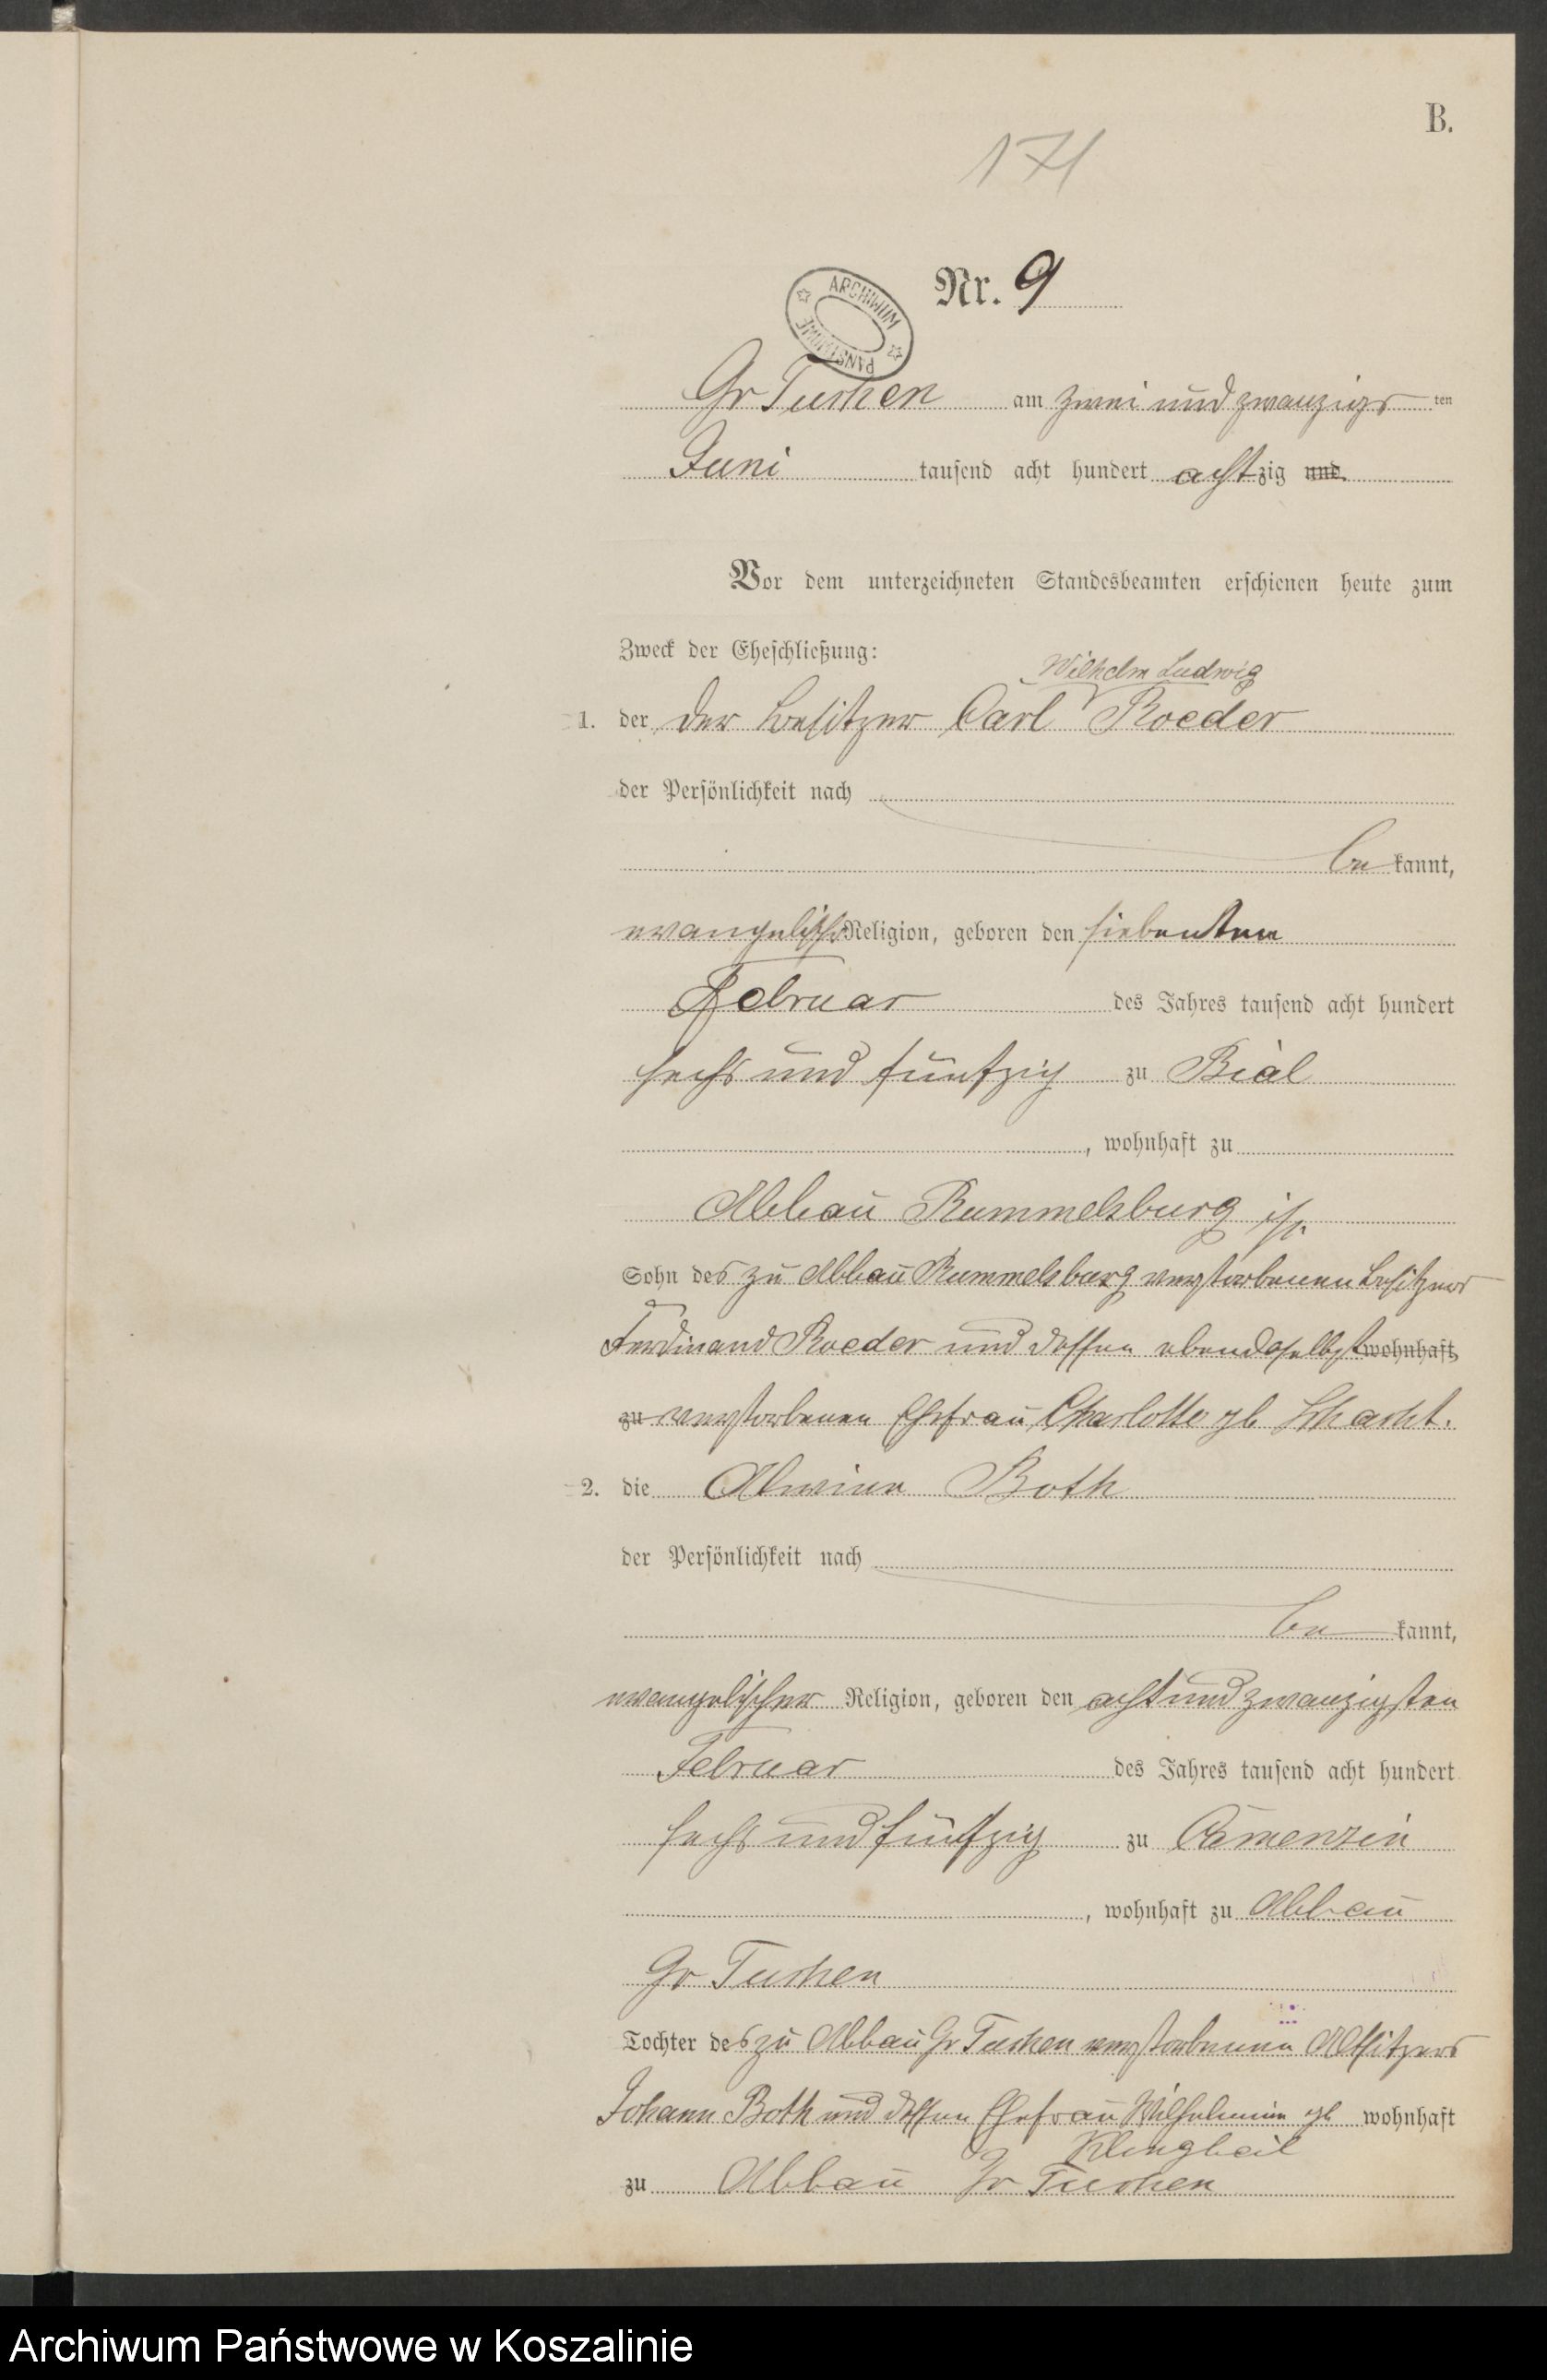 B.
171
Nr. 9
ARCHIWUM PAŃSTWOWE
Gr Tuchen am zwei und zwanzigs ten
Juni tausend acht hundert achtzig und
Vor dem unterzeichneten Standesbeamten erschienen heute zum
Zweck der Eheschließung:
Wilhelm Ludwig
1. der der Besitzer Carl Roeder
der Persönlichkeit nach
be kannt,
evangelischer Religion, geboren den siebenten
Februar des Jahres tausend acht hundert
sechs und fünfzig zu Bial
, wohnhaft zu
Abbau Rummelsburg i/p.
Sohn des zu Abbau Rummelsburg verstorbenen Besitzers
Ferdinand Roeder und dessen ebendaselbst wohnhaft
zu verstorbenen Ehefrau Charlotte gb Schacht.
2. die Alwine Both
der Persönlichkeit nach
be kannt,
evangelischer Religion, geboren den acht und zwanzigsten
Februar des Jahres tausend acht hundert
sechs und fünfzig zu Camenzin
, wohnhaft zu Abbau
Gr Tuchen
Tochter des zu Abbau Gr Tuchen verstorbenen Altsitzers
Johann Both und dessen Ehefrau Wilhelmine gb wohnhaft
Klingbeil
zu Abbau Gr Tuchen
Archiwum Państwowe w Koszalinie